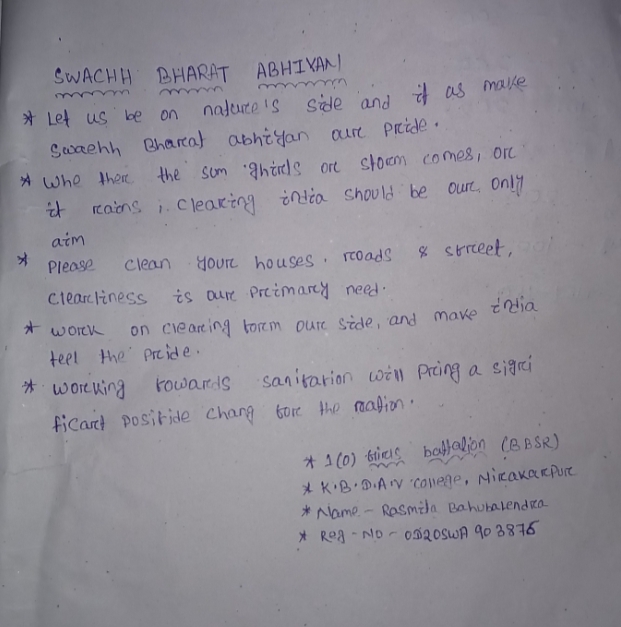 SWACHH BHARAT ABHIYAN
* Let us be on nature's side and it as make
Swachh Bharat abhiyan oure Pride.
* Whe ther the sun ghirls ore storm comes, ore
it rains, cleaning india should be oure only
aim
* Please clean youre houses, roads & street,
Cleanliness is oure Primary need.
* work on cleaning form oure side, and make india
feel the Pride.
* working towards sanitation will Pring a signi
ficant positide chang fore the nation.
* 1(0) Girls battalion (BBSR)
* K.B.D.A.V college, Nirakarpur
* Name - Rasmita Bahubalendra
* Reg - NO -